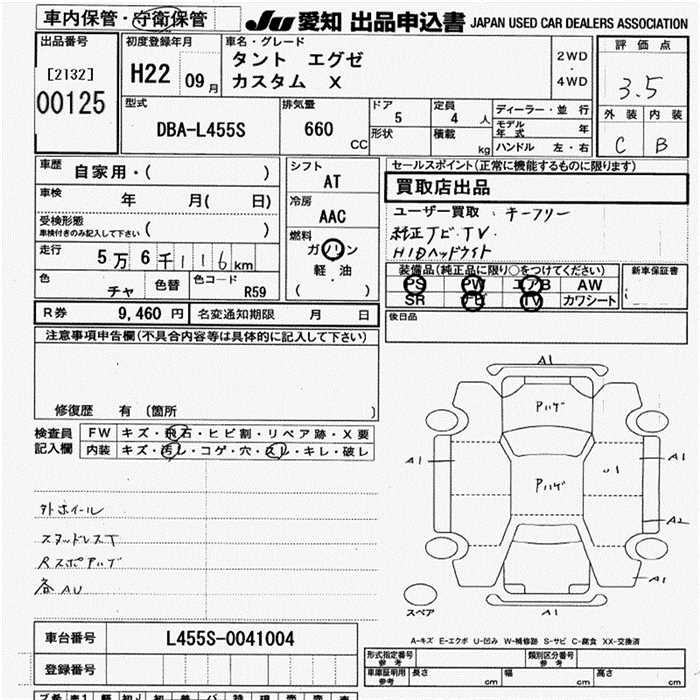 車内保管・守衛保管
JU 愛知 出品申込書 JAPAN USED CAR DEALERS ASSOCIATION
出品番号
[2132]
00125
初度登録年月
H22 09月
車名・グレード
タント エグゼ
カスタム X
2WD
・
4WD
評価点
3.5
外装 内装
C B
型式
DBA-L455S
排気量
660
CC
ドア
5
形状
定員
4 人
積載
kg
ディーラー・並行
モデル年式 年
ハンドル 左・右
車歴 自家用・( )
車検 年 月( 日)
受検形態
車検付きのみ記入して下さい ( )
走行 5万6千116km
色 チャ 色替 色コード R59
シフト
AT
冷房
AAC
燃料
ガソリン
軽・油
( )
セールスポイント(正常に機能するものに限ります)
買取店出品
ユーザー買取、キーフリー
純正ナビ・TV、
HIDヘッドライト
装備品(純正品に限り○をつけてください)
PS PW エアB AW
SR ナビ TV カワシート
新車保証書
後日品
R券 9,460 円 名変通知期限 月 日
注意事項申告欄(不具合内容等は具体的に記入して下さい)
修復歴 有 (箇所 )
検査員記入欄
FW キズ・飛石・ヒビ割・リペア跡・X要
内装 キズ・汚レ・コゲ・穴・スレ・キレ・破レ
外ホイール
スタッドレスT
各AU
A1
Pハゲ
A1
Pハゲ
U1
A1
A2
A1
A1
スペア
A-キズ E-エクボ U-凹み W-補修跡 S-サビ C-腐食 XX-交換済
車台番号 L455S-0041004
登録番号
形式指定番号 参考
類別区分番号 参考
車庫証明用 参考 長さ cm 幅 cm 高さ cm